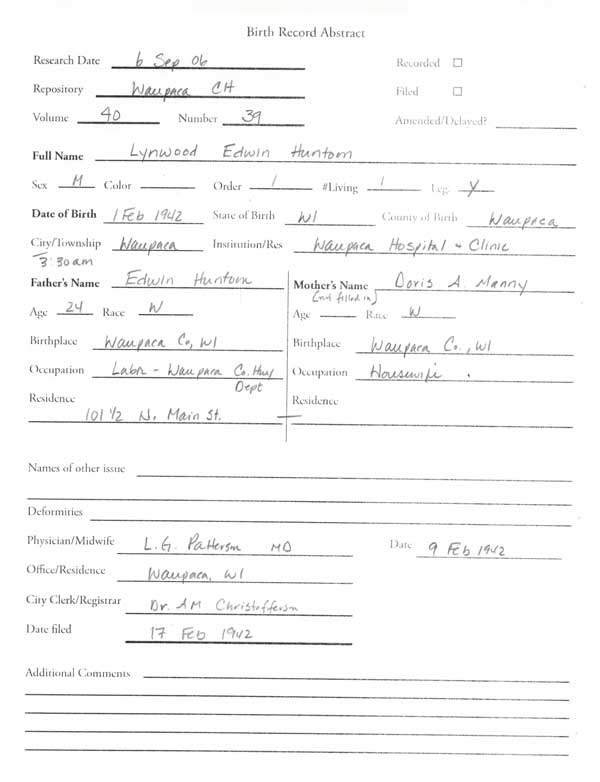 Birth Record Abstract
Research Date 6 Sep 06 Recorded
Repository Waupaca CH Filed
Volume 40 Number 39 Amended/Delayed?
Full Name Lynwood Edwin Huntoon
Sex M Color Order 1 #Living 1 Leg. Y
Date of Birth 1 Feb 1942 State of Birth WI County of Birth Waupaca
City/Township Waupaca Institution/Res Waupaca Hospital + Clinic
3:30am
Father's Name Edwin Huntoon Mother's Name Doris A. Manny
(not filled in)
Age 24 Race W Age Race W
Birthplace Waupaca Co, WI Birthplace Waupaca Co., WI
Occupation Labr - Waupaca Co. Hwy Occupation Housewife
Dept
Residence Residence
101 1/2 N. Main St.
Names of other issue
Deformities
Physician/Midwife L.G. Patterson MD Date 9 Feb 1942
Office/Residence Waupaca, WI
City Clerk/Registrar Dr. AM Christofferson
Date filed 17 Feb 1942
Additional Comments